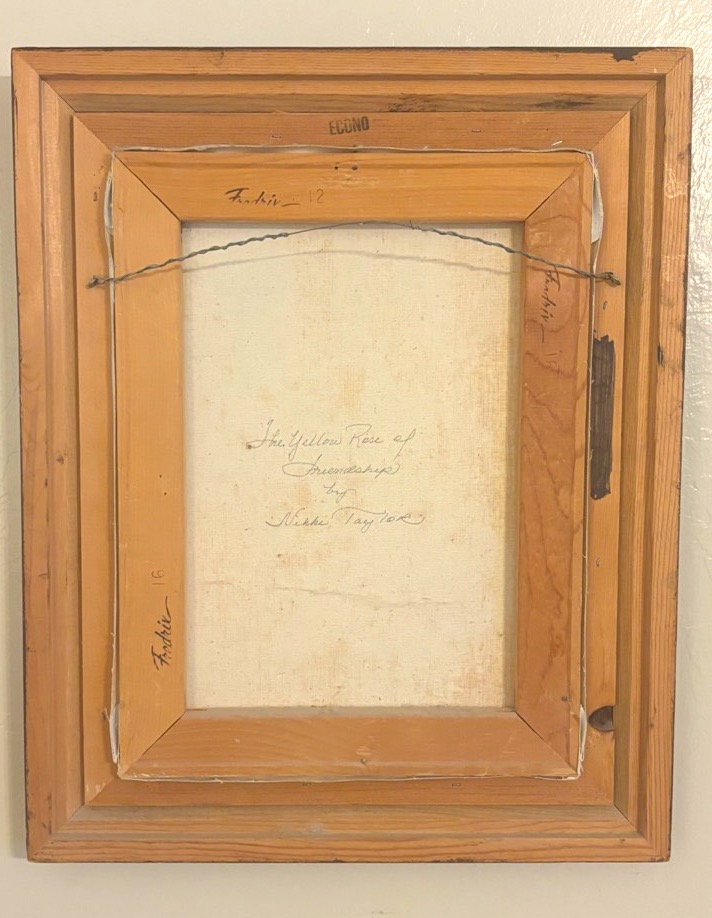 ECONO
Fredrix 12
Fredrix 16
The Yellow Rose of
Friendship
by
Nikki Taylor
Fredrix 16